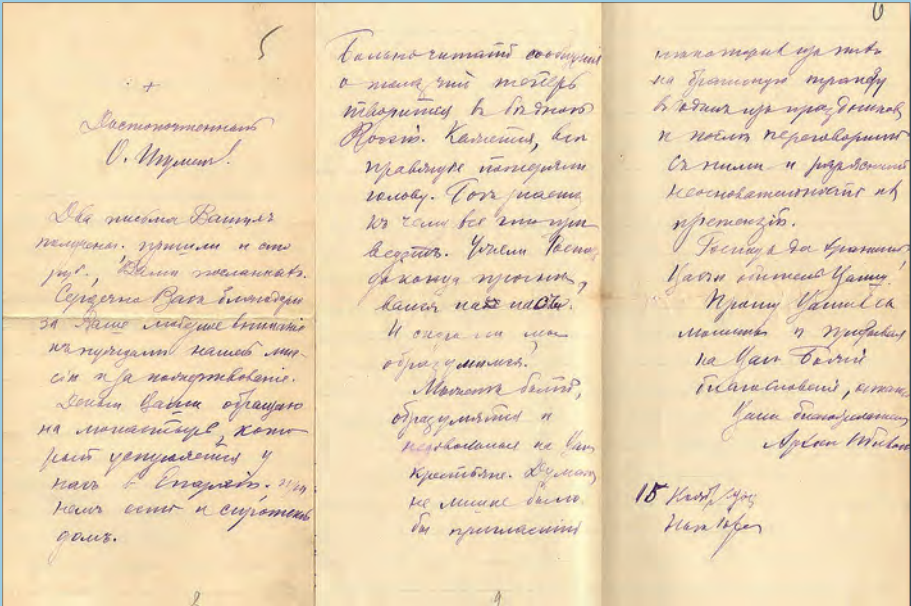 5
+
Достопочтеннѣйшій
О. Игуменъ!
Два письма Вашихъ
получены. пришли и сто
руб., Вами посланныхъ.
Сердечно Васъ благодарю
за Ваше любящее вниманіе
къ нуждамъ нашей мис-
сіи и за пожертвованіе.
Деньги Ваши обращаю
на монастырь, кото
рый устрояется у
насъ въ Епархіи.
немъ есть и сиротскій
домъ.
Больно читать сообщенія
о томъ, что теперь
творится въ бѣдной
Россіи. Кажется, всѣ
потеряли
голову. Богъ знаетъ
къ чему все это при
ведетъ. Ужели Господь
до конца прогнѣ
вался на насъ.
И скоро ли мы
образумимся?
Можетъ быть,
образумятся и
недовольные на Васъ
крестьяне. Думаю
не лишне было
бы пригласить
нѣкоторыхъ изъ нихъ
на братскую трапезу
въ одинъ изъ праздниковъ
и послѣ переговорить
съ ними и разъяснить
неосновательность ихъ
претензій.
Господь да хранитъ
Васъ и обитель Вашу!
Прошу Вашихъ св.
молитвъ и призывая
на Васъ Божіе
благословеніе, остаюсь
Вашъ
15 Нояб.
Нью Іоркъ